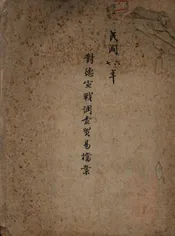 民国六年
對德宣戰調查貿易檔案